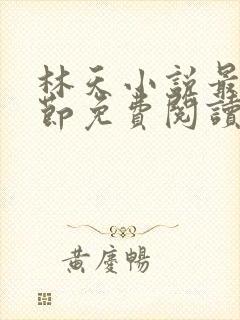 林天小説最
節免費閱讀
黃慶暢